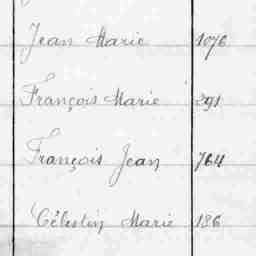 Jean Marie 1076
François Marie 291
François Jean 764
Célestin Marie 186